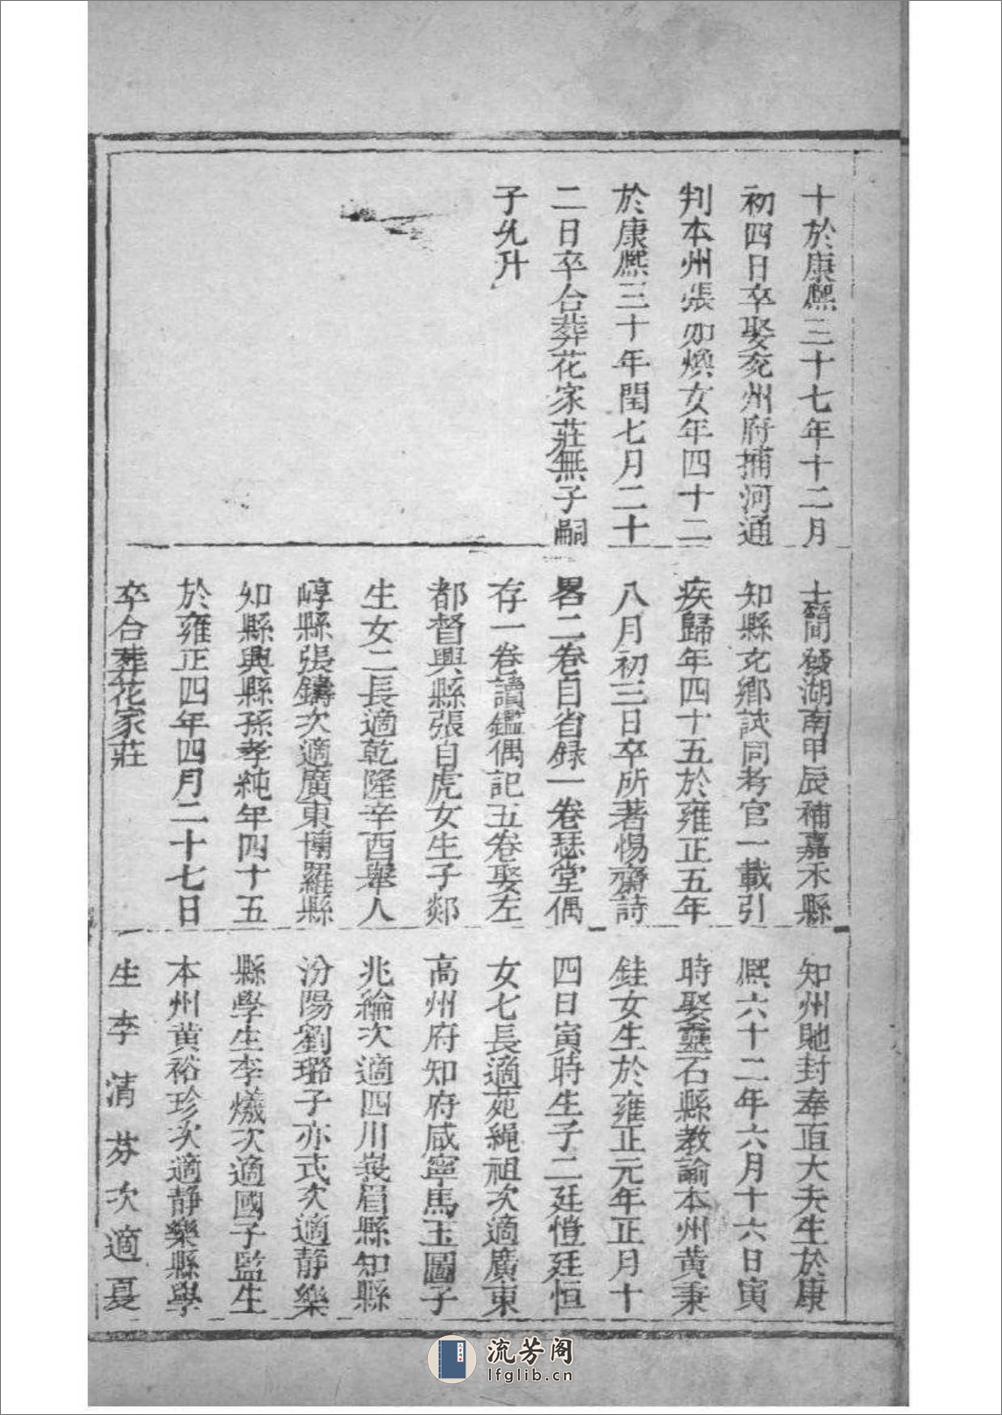 十於康熈三十七年十二月
初四日卒娶兖州府捕河通
判本州張如煥女年四十二
於康熈三十年閏七月二十
二日卒合葬花家莊無子嗣
子允升
士簡發湖南甲辰補嘉禾縣
知縣充鄉試同考官一載引
疾歸年四十五於雍正五年
八月初三日卒所著惕齋詩
畧二卷自省録一卷瑟堂偶
存一卷讀鑑偶記五卷娶左
都督興縣張自虎女生子郯
生女二長適乾隆辛酉舉人
崞縣張鑄次適廣東博羅縣
知縣興縣孫孝純年四十五
於雍正四年四月二十七日
卒合葬花家莊
知州貤封奉直大夫生於康
熈六十二年六月十六日寅
時娶靈石縣教諭本州黄秉
銈女生於雍正元年正月十
四日寅時生子二廷愷廷恒
女七長適苑繩祖次適廣東
高州府知府咸寧馬玉圖子
兆綸次適四川峩眉縣知縣
汾陽劉璐子亦式次適靜樂
縣學生李爔次適國子監生
本州黄裕珍次適靜樂縣學
生李清芬次適夏
流芳阁
lfglib.cn